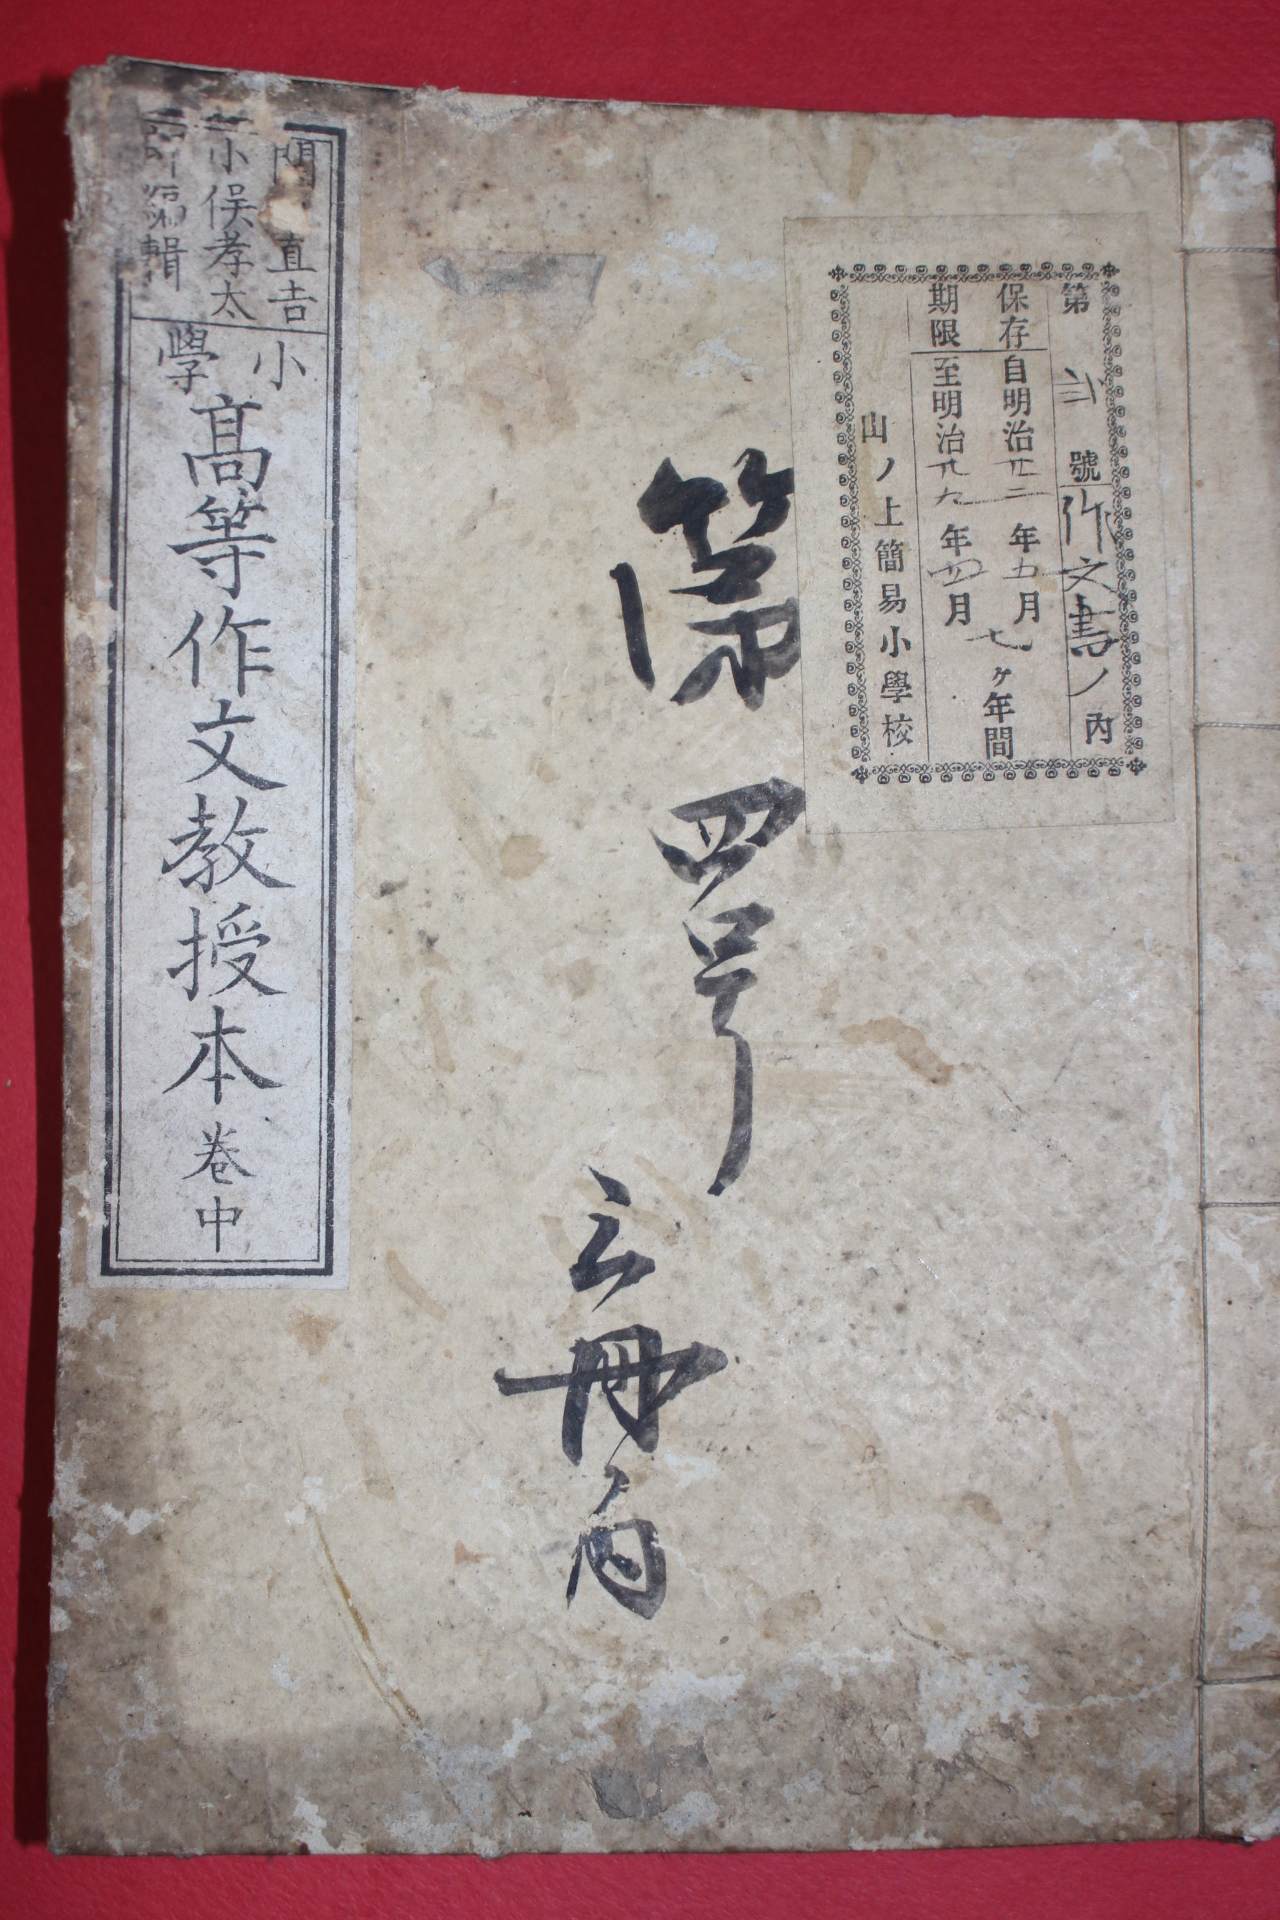 第 弐 號 作文書ノ内
保存 自明治廿二年五月
期限 至明治廿九年四月
七ヶ年間
山ノ上簡易小學校
第四号
三冊內
關 直吉
小俣孝太
編輯
小學
高等作文教授本 卷中